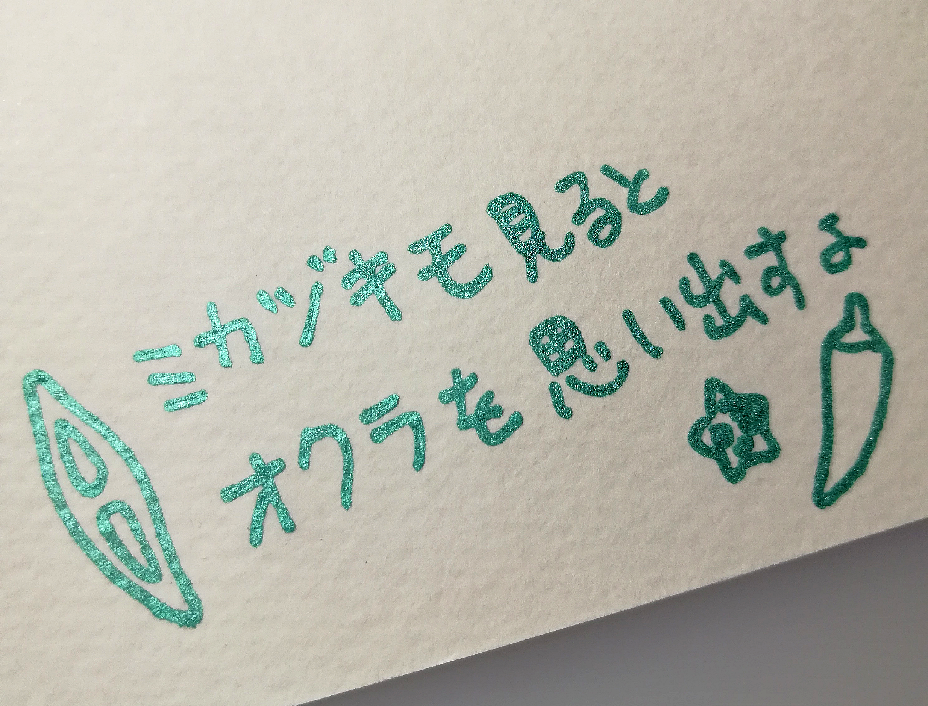 ミカヅキモ見ると
オクラを思い出すよ